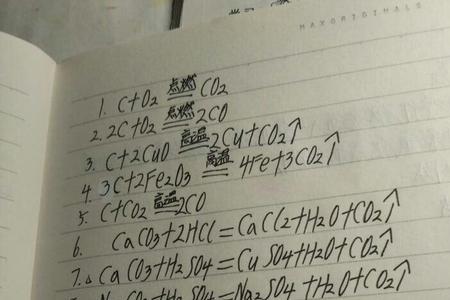 MAXORIGINALS
1. C+O₂ 点燃 CO₂
2. 2C+O₂ 点燃 2CO
3. C+2CuO 高温 2Cu+CO₂↑
4. 3C+2Fe₂O₃ 高温 4Fe+3CO₂↑
5. C+CO₂ 高温 2CO
6. CaCO₃+2HCl=CaCl₂+H₂O+CO₂↑
7.△ CaCO₃+H₂SO₄=CuSO₄+H₂O+CO₂↑
Na₂CO₃+H₂SO₄=Na₂SO₄+H₂O+CO₂↑